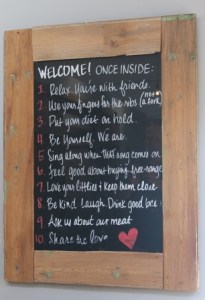 WELCOME! ONCE INSIDE:
1. Relax. You're with friends.
2. Use your fingers for the ribs (more a fork)
3. Put your diet on hold.
4. Be Yourself. We are.
5. Sing along when THAT song comes on
6. Feel good about buying free-range
7. Love your + keep them close
8. Be kind. Laugh. Drink good
9. Ask us about our meat
10. Share the love